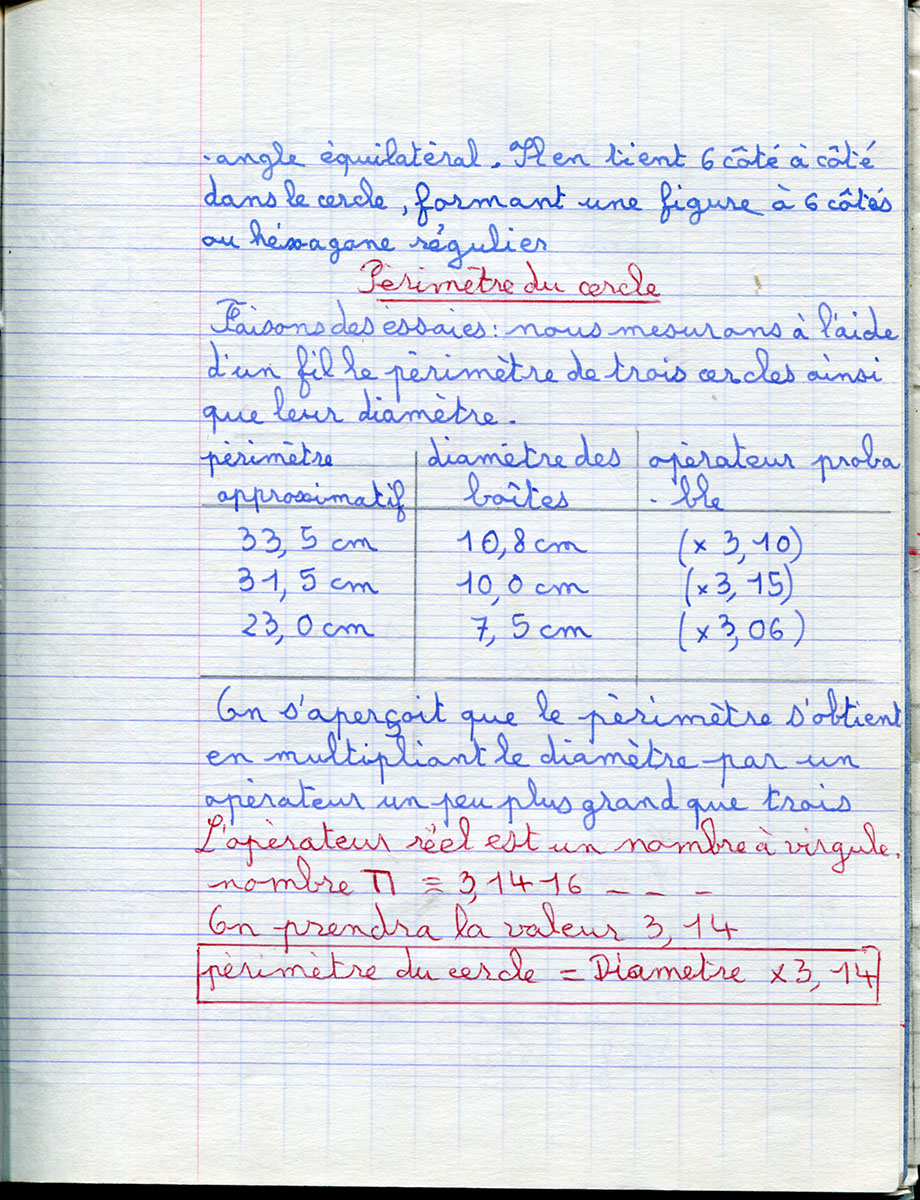 .angle équilatèral. Il en tient 6 côté à côté
dans le cercle, formant une figure à 6 côtés
ou héxagone régulier
Pèrimètre du cercle
Faisons des essaies : nous mesurons à l'aide
d'un fil le pèrimètre de trois cercles ainsi
que leur diamètre.
pèrimètre diamètre des opèrateur proba
approximatif boîtes . ble
33,5 cm 10,8 cm (x 3,10)
31,5 cm 10,0 cm (x 3,15)
23,0 cm 7,5 cm (x 3,06)
On s'aperçoit que le pèrimètre s'obtient
en multipliant le diamètre par un
opèrateur un peu plus grand que trois
L'opèrateur réel est un nombre à virgule.
nombre π = 3,14 16 _ _ _
On prendra la valeur 3,14
pèrimètre du cercle = Diametre x 3,14